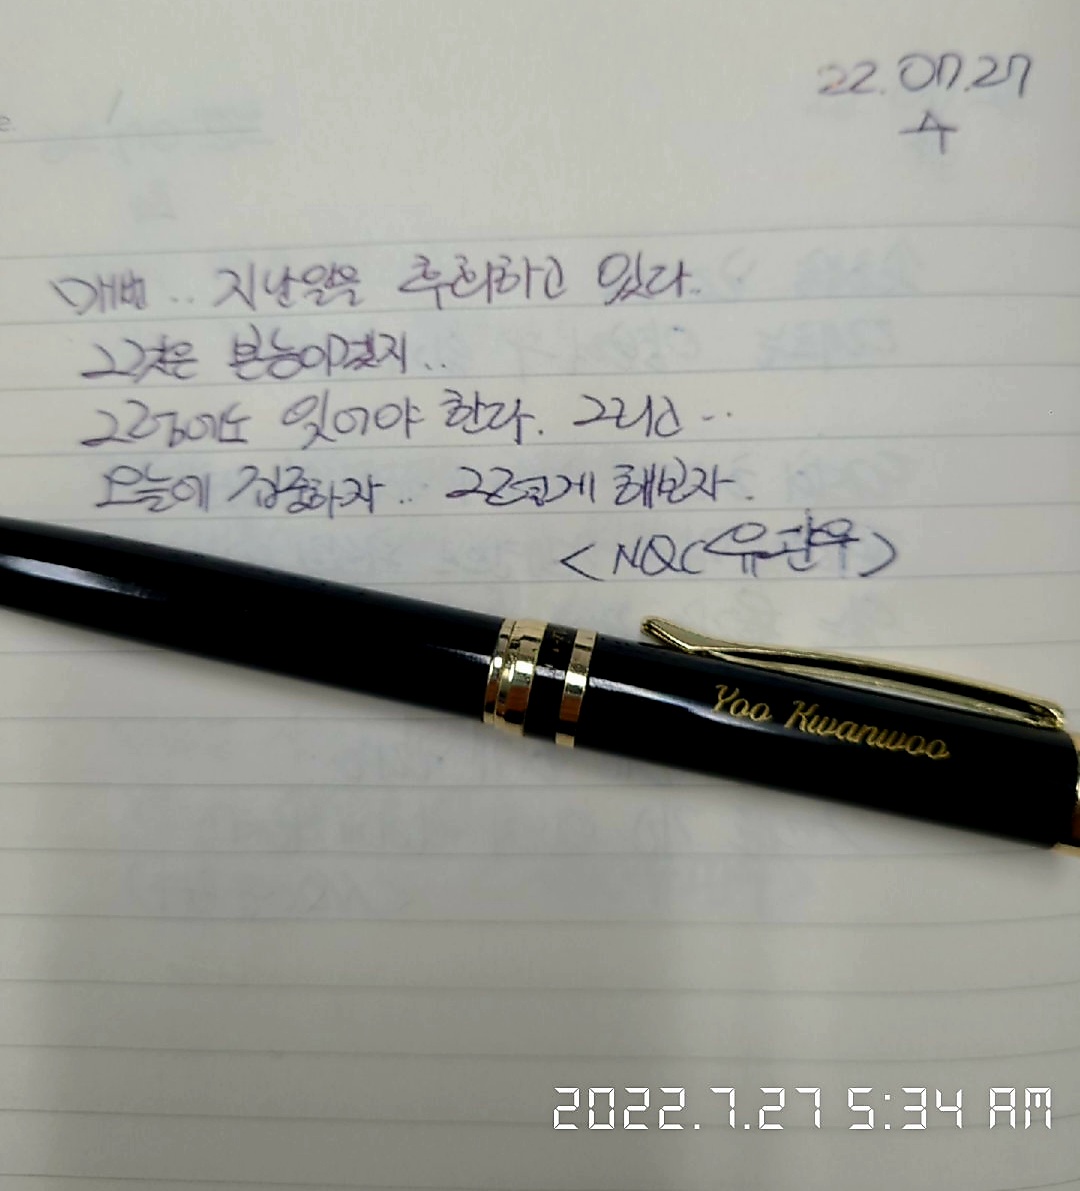 22.07.27
수
매번.. 지난일을 후회하고 있다..
그것은 본능이겠지..
그럼에도 잊어야 한다. 그리고...
오늘에 집중하자.. 그렇게 해보자.
<NQC유관우>
Yoo Kwanwoo
2022.7.27 5:34 AM